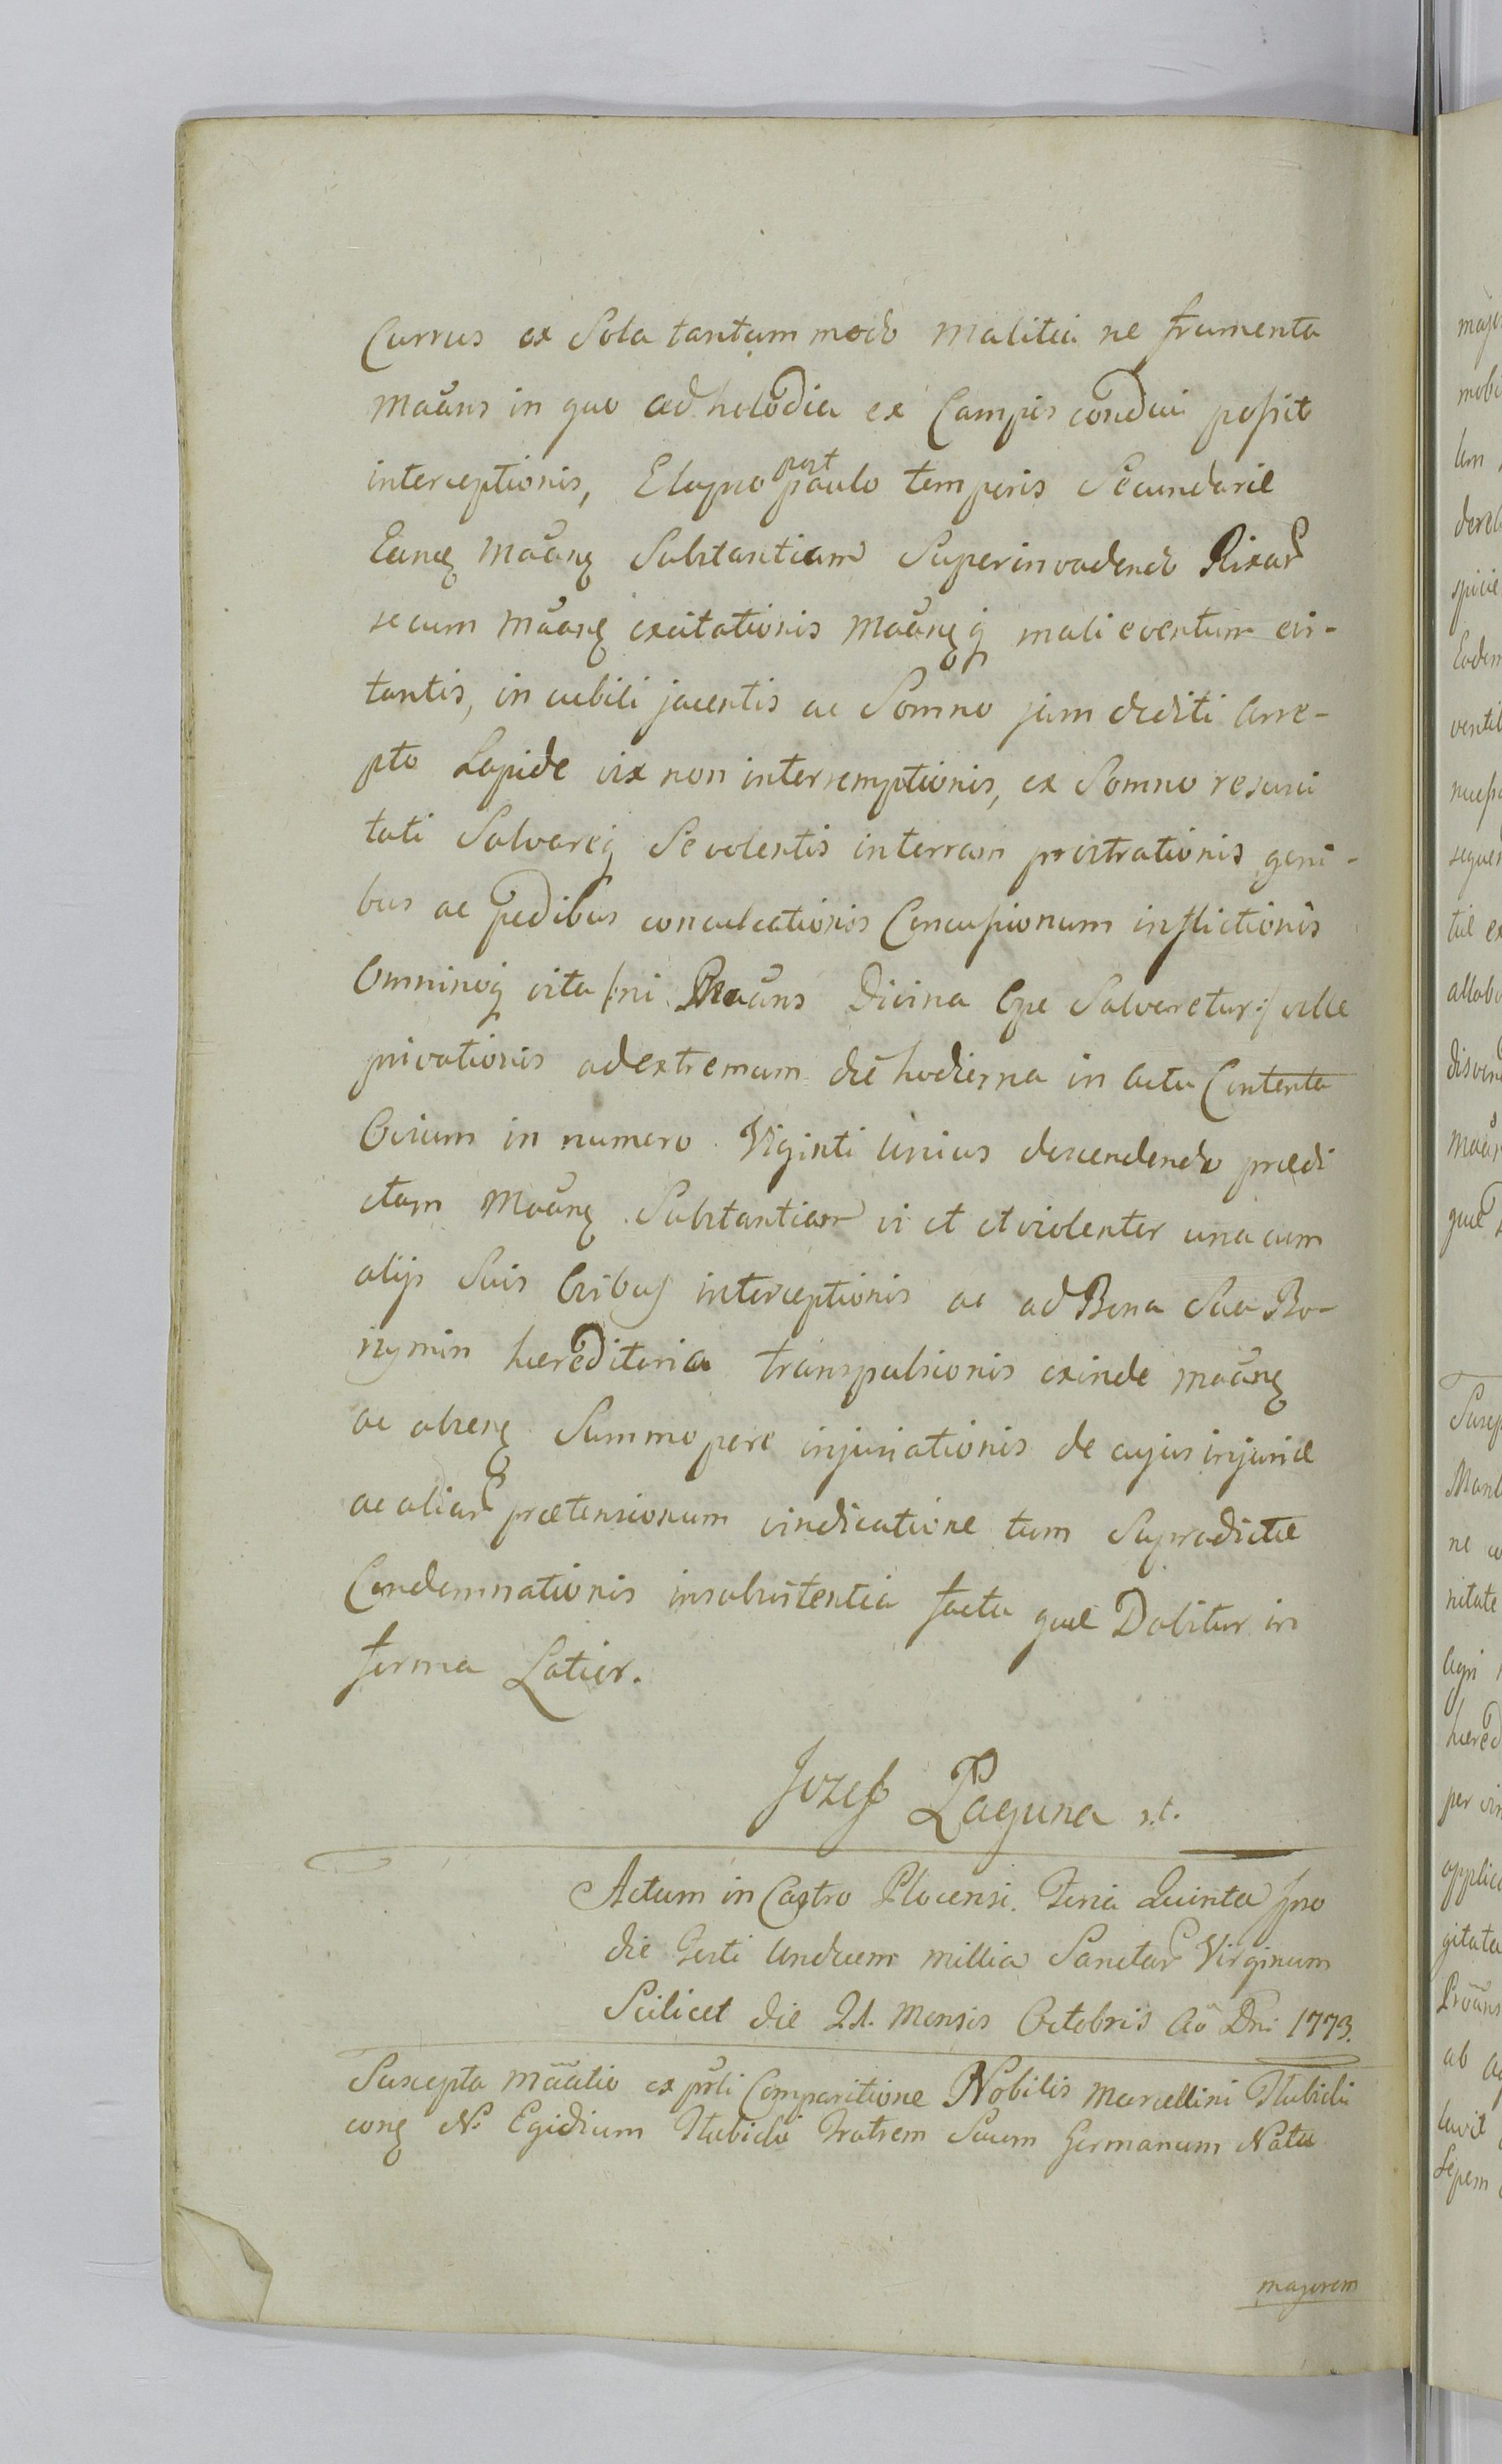 Currus ex Sola tantum modo malitia ne frumenta
Mãans in quo ad holodia ex Campis condui possit
interceptionis, Elapso post paulo temporis Secundarie
Eanq Mãanq Substantiam Superinvadendo Rixar
secum Mãanq excitationis Mãanqq mali eventum evi-
tantis, in cubili jacentis ac Somno jam dediti Arre-
pto Lapide vix non interremptionis, ex Somno resusci
tati Salvareq Se volentis in terram prostrationis geni-
bus ac pedibus conculcationis Concussionum inflictionis
Omninoq vita /:ni Mãans Divina Ope Salvaretur:/ velle
privationis ad extremum die hodierna in Actu Contenta
Ovium in numero Viginti Unius descendendo prædi
ctam Mãanq Substantiam vi et et violenter una cum
alijs Suis Ovibus interceptionis ac ad Bona Sua Bo-
nymin hæreditaria transpulsionis exinde Mãanq
ac absenq Summopere injuriationis de cujus injuriæ
ac aliar prætensionum vindicatione tum Supradictæ
Condemnationis insubsistentia facta quæ Dabitur in
forma Latior.
Jozeff Laguna s.t.
Actum in Castro Plocensi. Feria Quinta Ipso
die Festi Undecem millia Sanctar Virginum
Scilicet die 21. Mensis Octobris Aõ Dni 1773.
Suscepta Mãatio ex pñli Comparitione Nobilis Marcellini
conq N. Egidium Fratrem Suum Germanum Natu
majorem